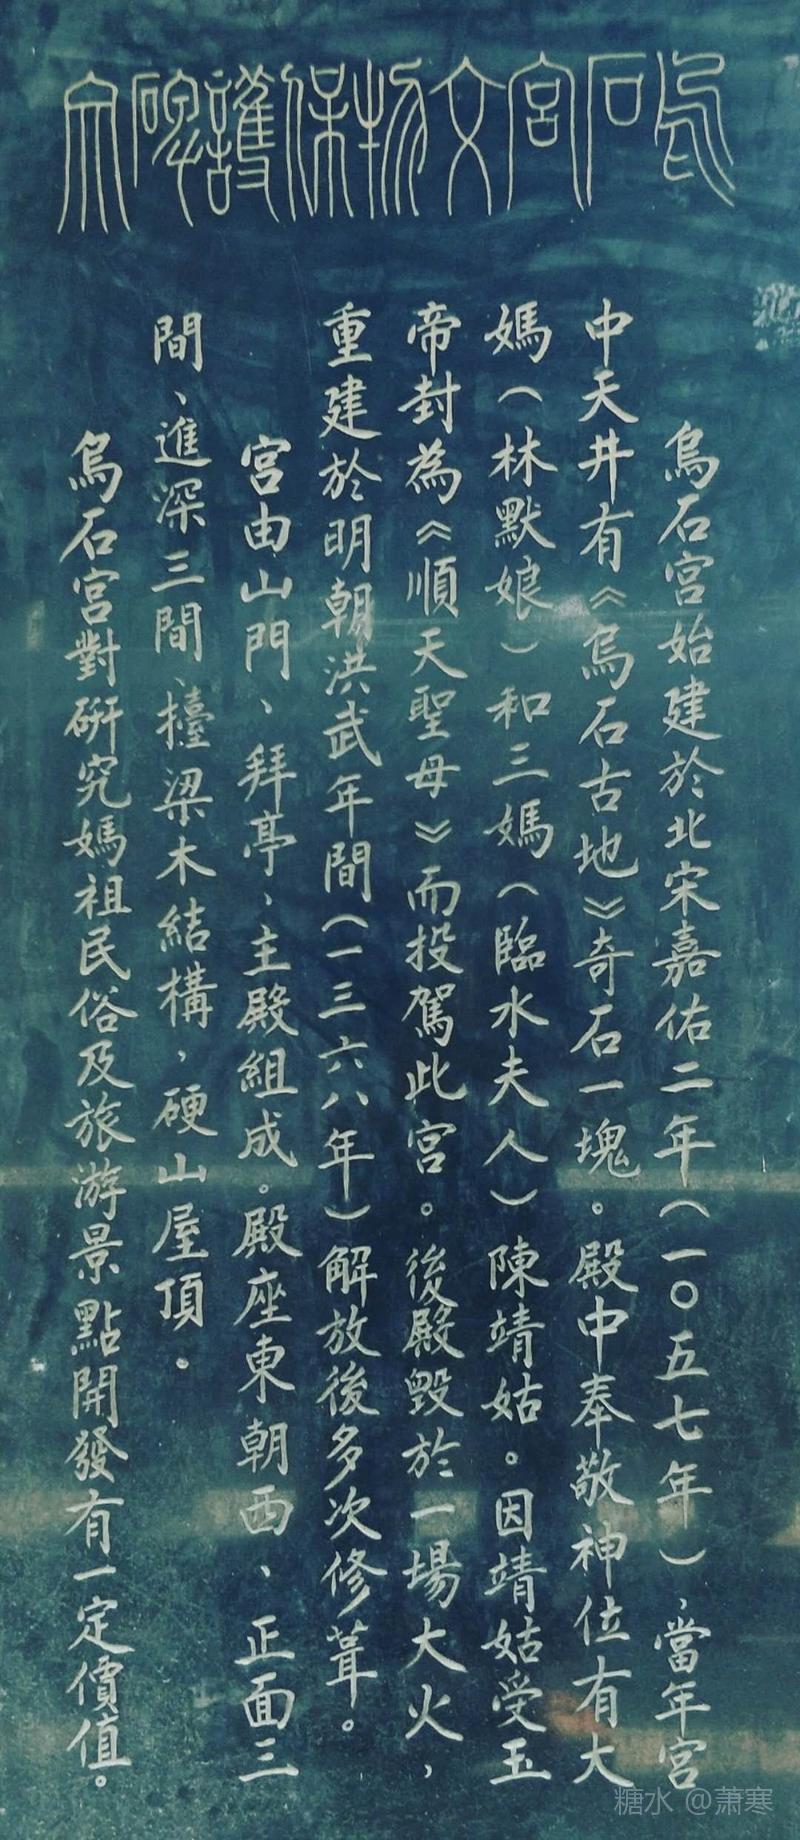 烏石宮文物保護碑
烏石宮始建於北宋嘉佑二年（一〇五七年），當年宮
中天井有《烏石古地》奇石一塊。殿中奉敬神位有大
媽（林默娘）和三媽（臨水夫人）陳靖姑。因靖姑受玉
帝封為《順天聖母》而投駕此宮。後殿毀於一場大火，
重建於明朝洪武年間（一三六八年）解放後多次修葺。
宮由山門、拜亭、主殿組成。殿座東朝西、正面三
間、進深三間、擡梁木結構，硬山屋頂。
烏石宮對研究媽祖民俗及旅游景點開發有一定價值。
糖水 @萧寒